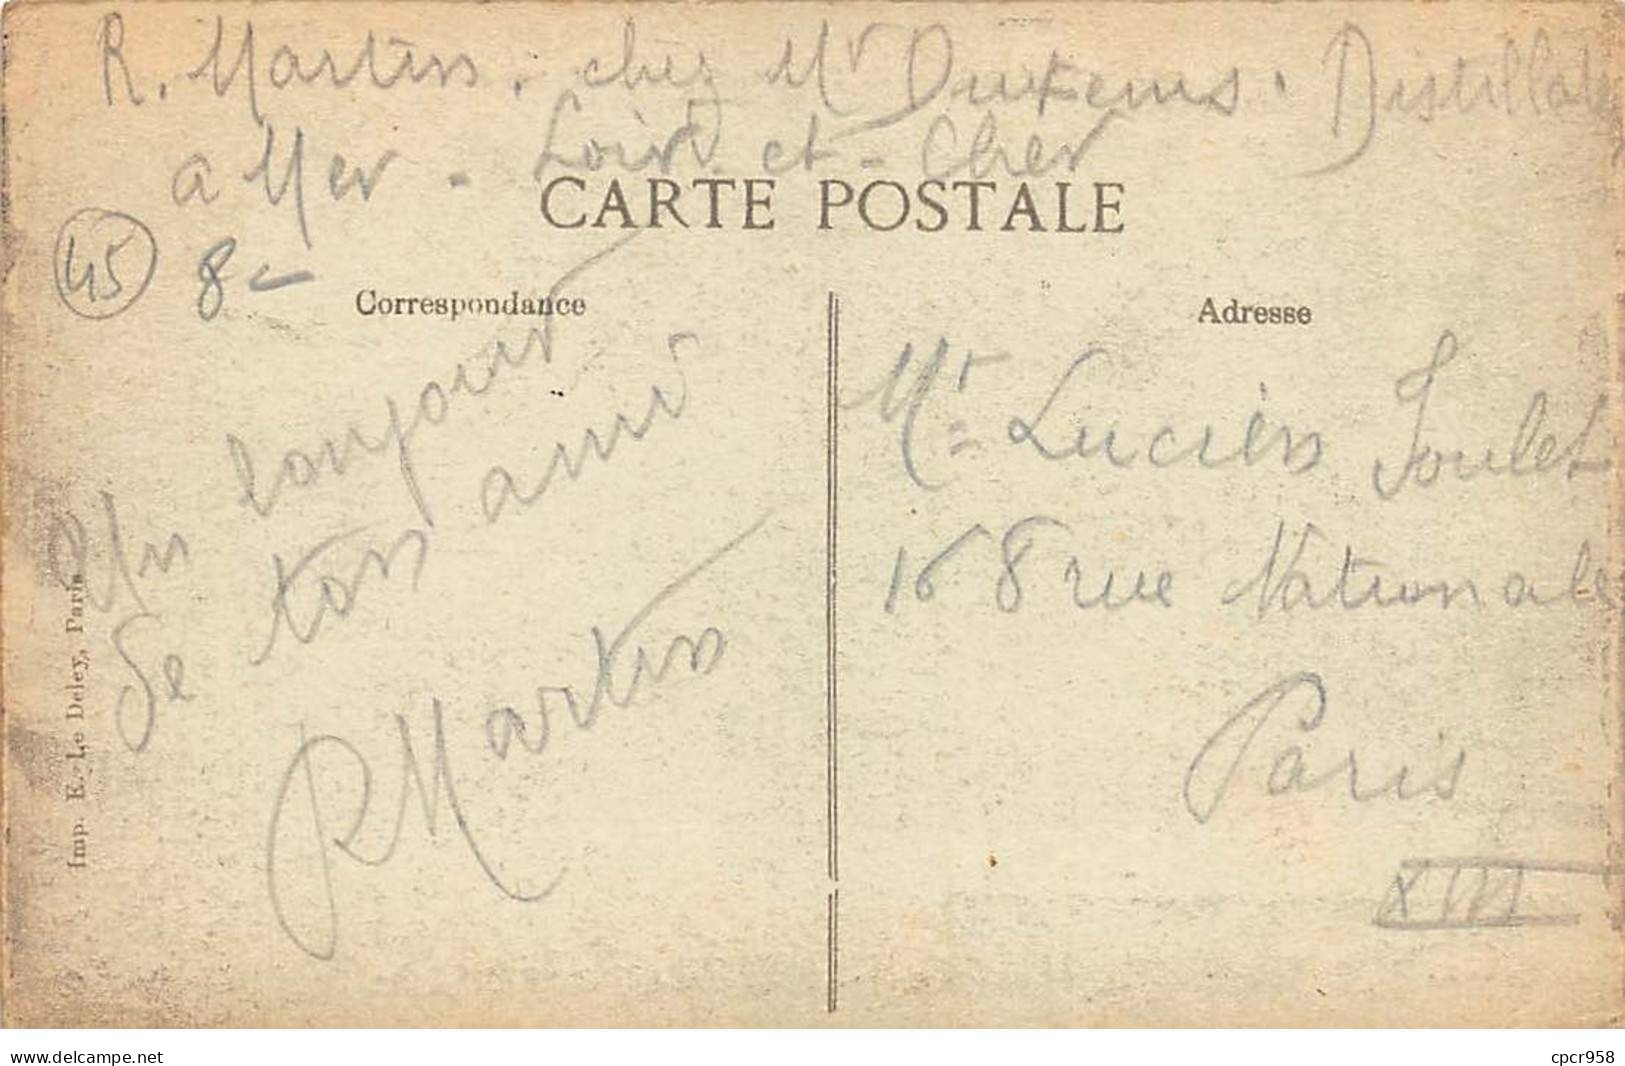 R. Martin. chez Mr Duxems. Distillat
a Mer - Loir - et - Cher
CARTE POSTALE
45
8 -
Correspondance
Adresse
Un bonjour
de ton ami
R Martin
Mr Lucien Joulet
168 rue Nationale
Paris
XIII
Imp. E. Le Deley, Paris
www.delcampe.net
cpcr958